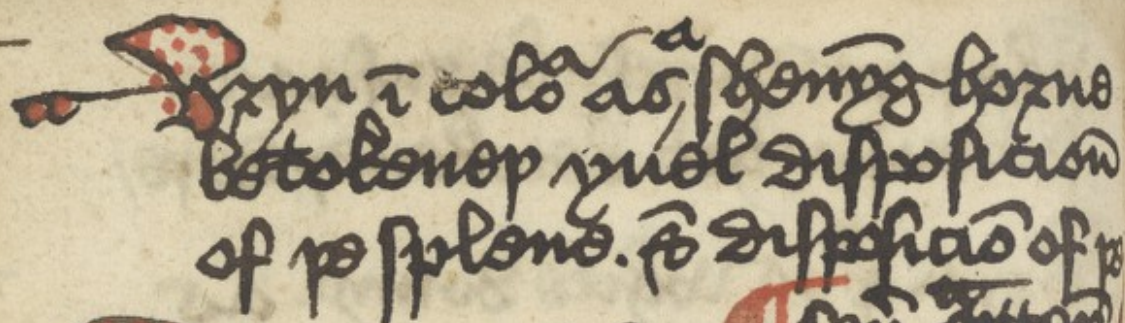 Vryn ī coloꝛ as a shenyg horne
betokeneþ yuel disposicion̄
of þe splene. & disposiciō of þe